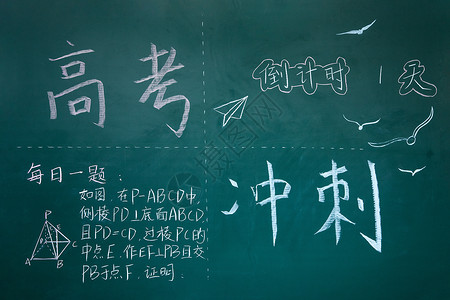 高考
倒计时 1天
每日一题:
如图.在P-ABCD中,
侧棱PD⊥底面ABCD,
且PD=CD,过棱PC的
中点E.作EF⊥PB且交
PB于点F.证明.
P
A
B
C
冲刺